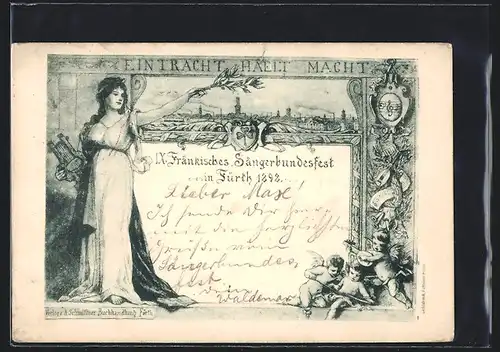 EINTRACHT HAELT MACHT
IX. Fränkisches Sängerbundesfest
in Fürth 1898.
Lieber Max!
Ich sende Dir hier
mit die herzlichsten
Grüße vom
Sängerbundes
fest
Dein
Waldemar
Verlag d. Schmittner Buchhandlung Fürth.